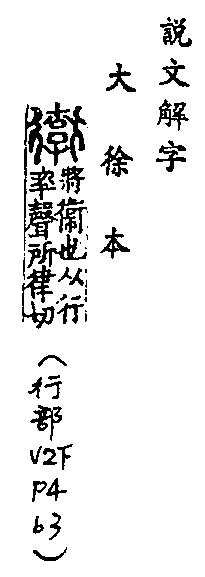 説文解字
大徐本
𧗿
將衛也从行
率聲所律切
(行部V2下P4b3)